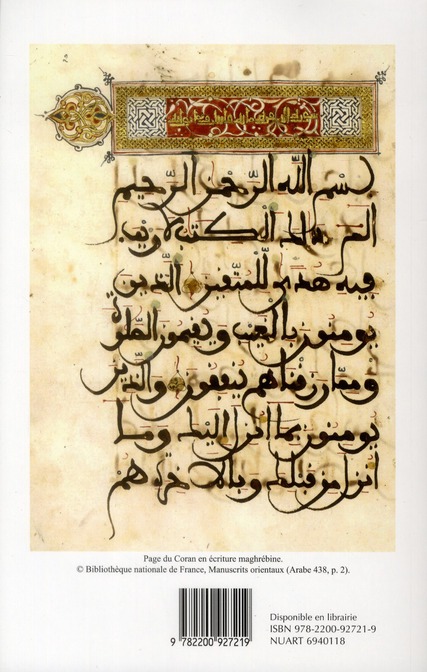 بسم الله الرحمن الرحيم
الم ذلك الكتب لا ريب
فيه هدى للمتقين الذين
يومنون بالغيب ويقيمون الصلوة
ومما رزقناهم ينفقون والذين
يومنون بما انزل اليك وما
انزل من قبلك وبالاخرة هم
Page du Coran en écriture maghrébine.
© Bibliothèque nationale de France, Manuscrits orientaux (Arabe 438, p. 2).
Disponible en librairie
ISBN 978-2200-92721-9
NUART 6940118
9 782200 927219